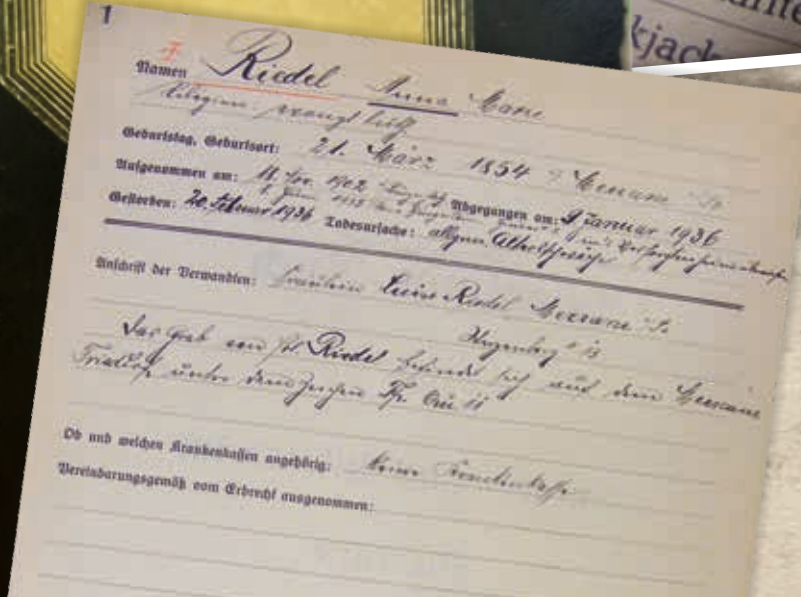 1
Namen Riedel Anna Marie
Religion:
Geburtstag, Geburtsort: 21. März 1854 Meerane i. Sa.
Aufgenommen am: 1902 Abgegangen am: 9 Januar 1936
Gestorben: 20. Februar 1936 Todesursache: allgem. Altersschwäche
Anschrift der Verwandten: Fräulein Luise Riedel Meerane i. Sa.
Das Grab von Frl. Riedel befindet sich auf dem Meeraner
Friedhof unter dem Zeichen
Ob und welchen Krankenkassen angehörig: Keine Krankenkasse
Vereinbarungsgemäß vom Erbrecht ausgenommen:
kjack